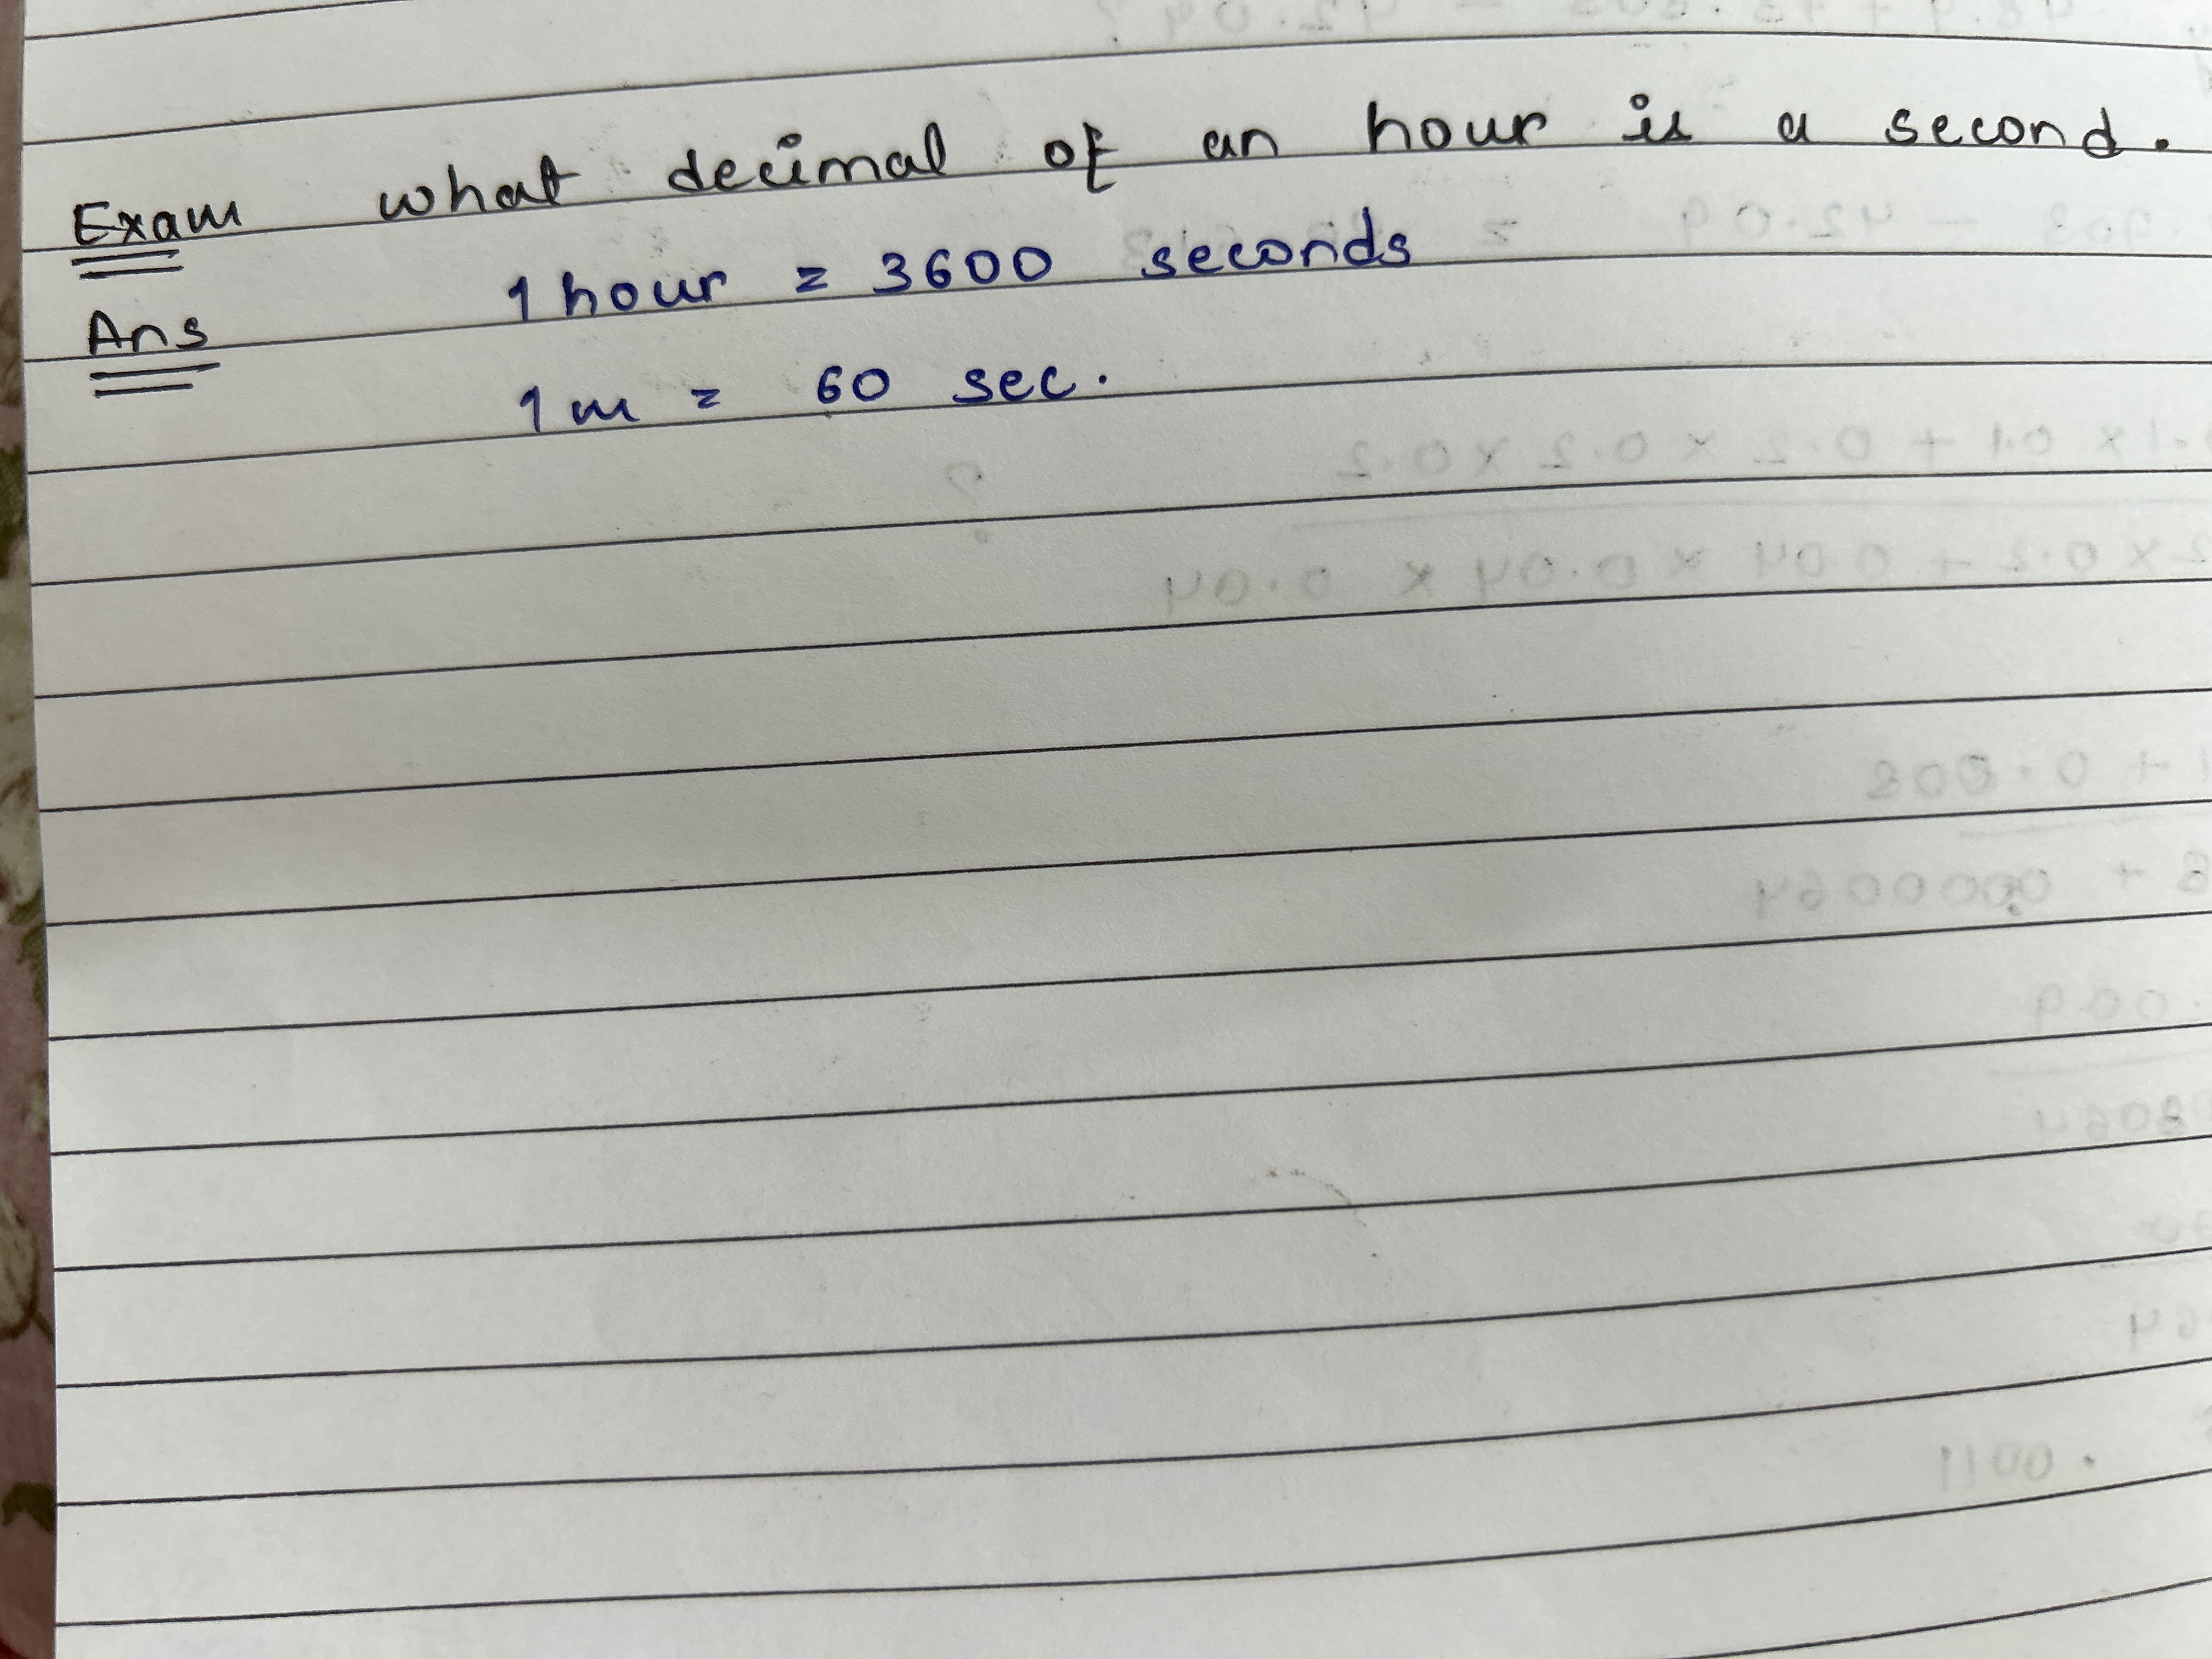 Exam what decimal of an hour is a second.
Ans 1 hour = 3600 seconds
1 m = 60 sec.